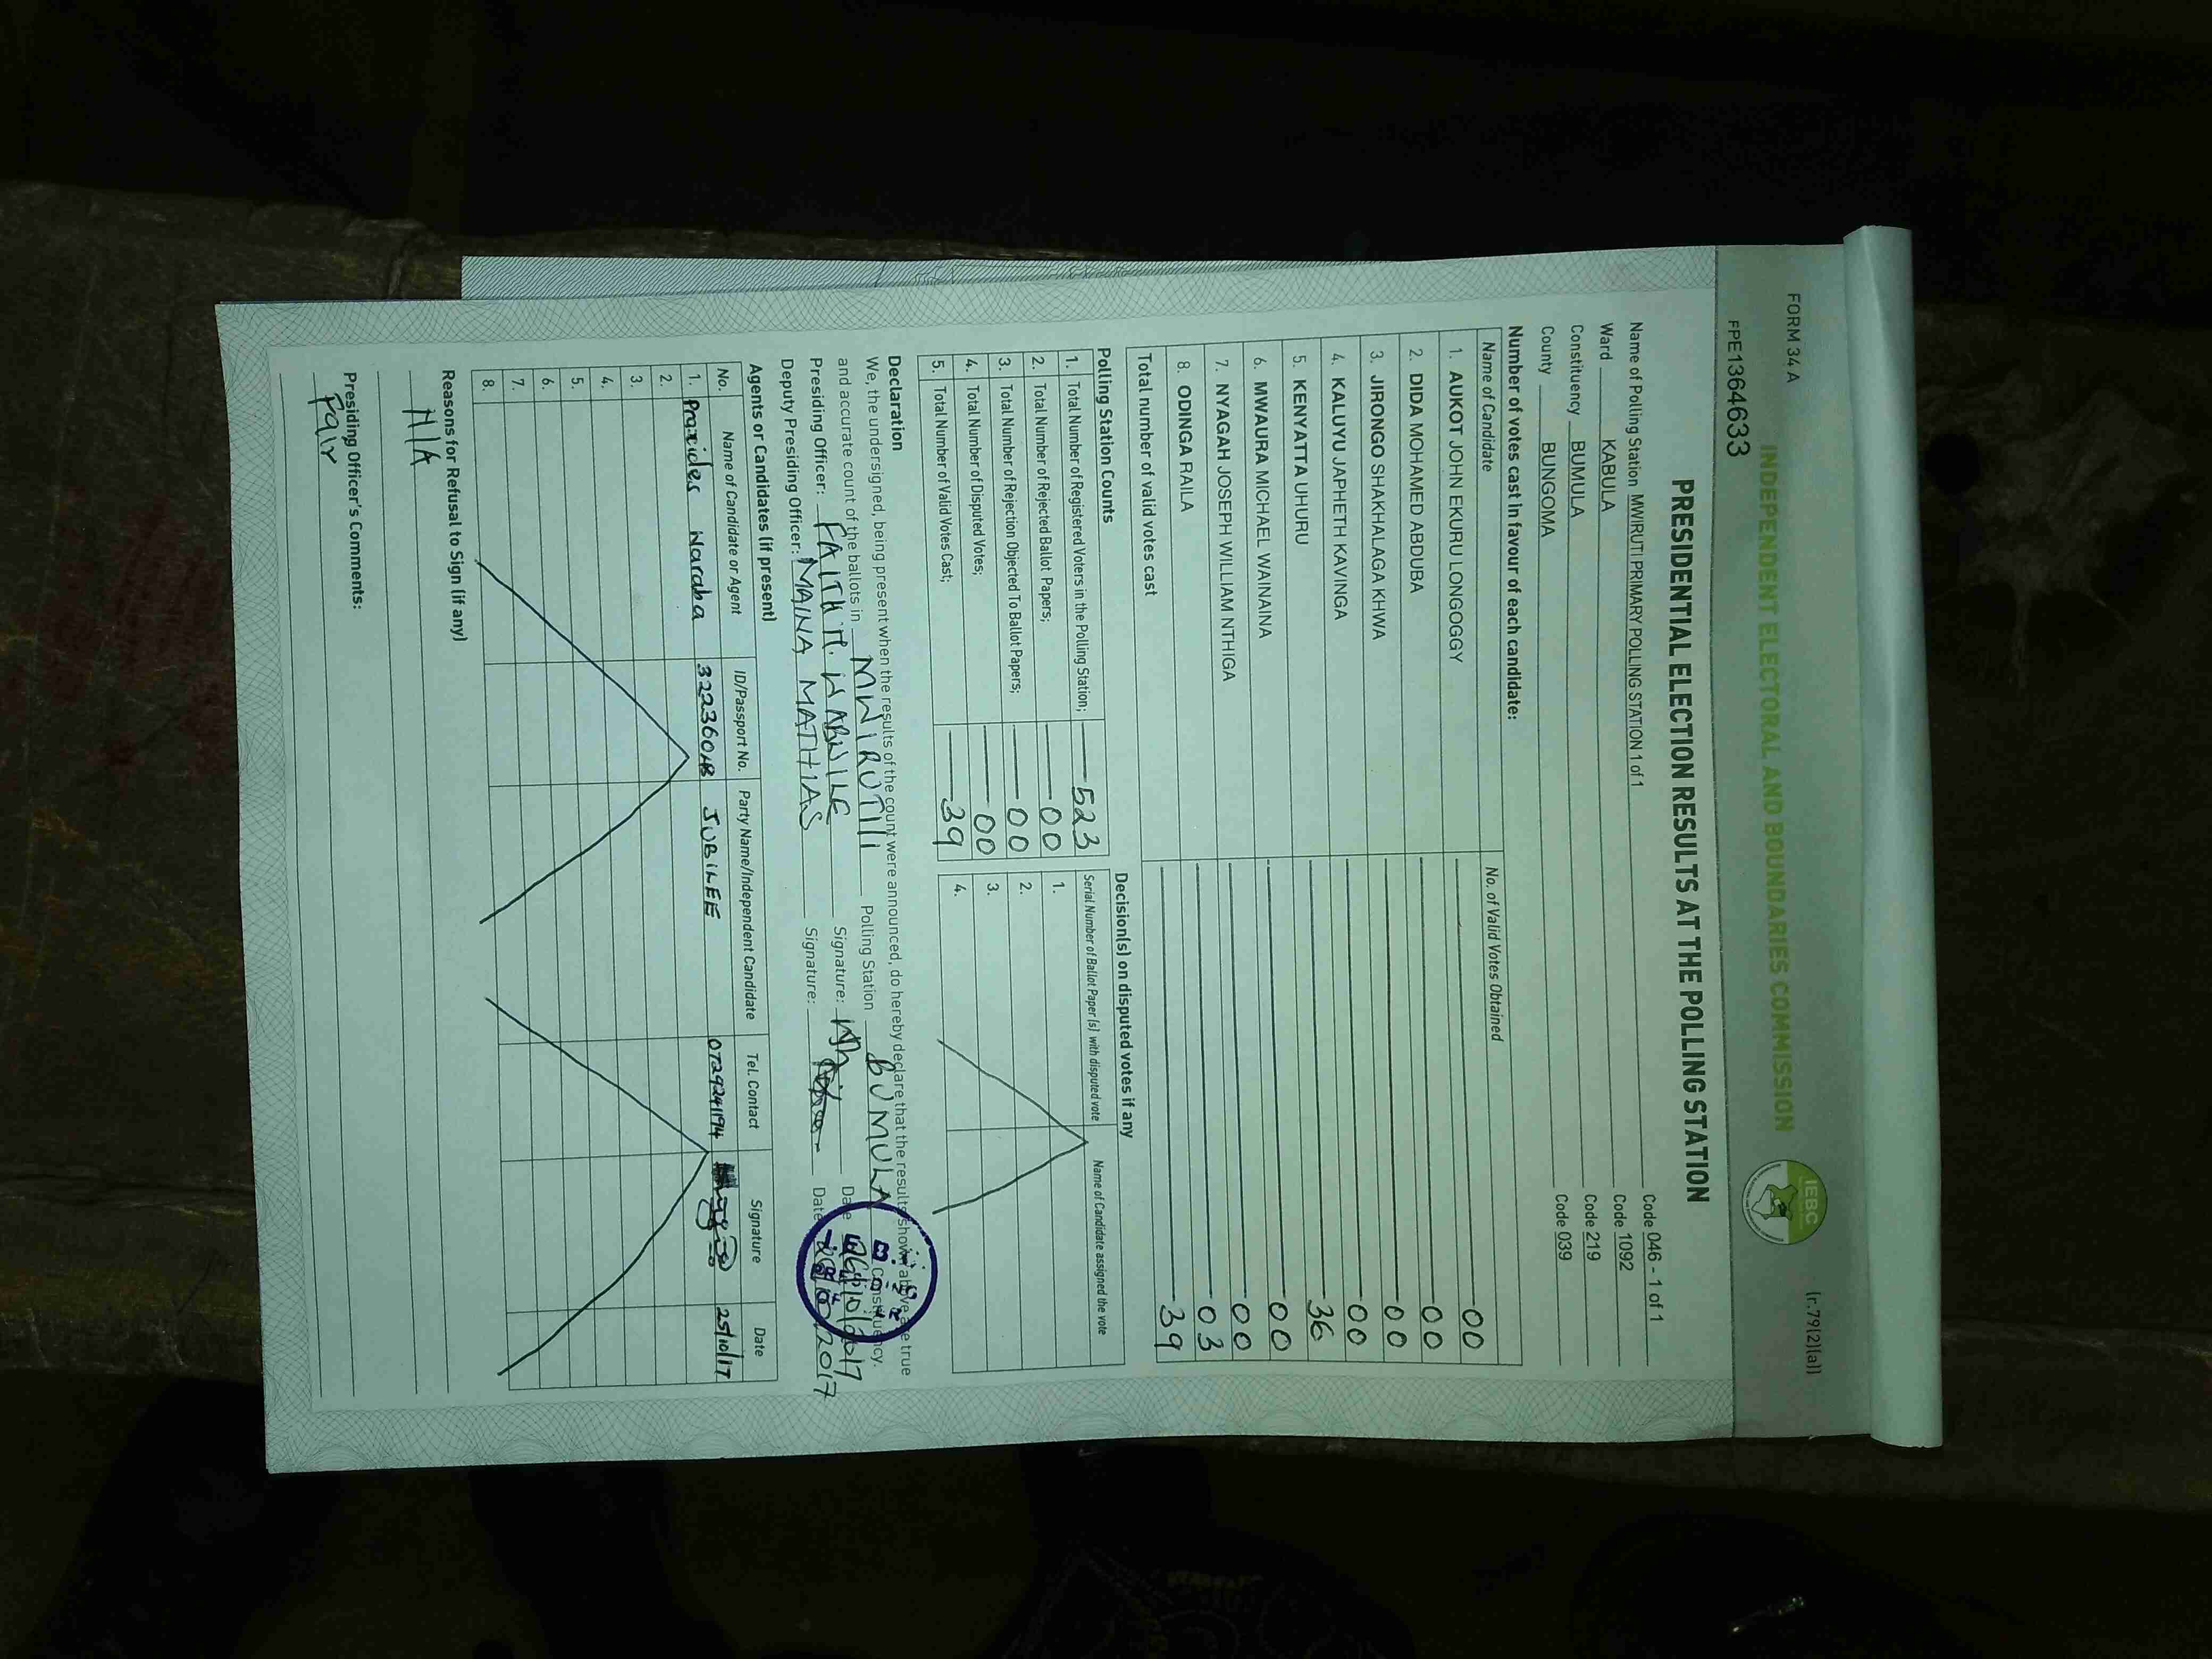 FORM 34 A
(r.79(2)(a))
INDEPENDENT ELECTORAL AND BOUNDARIES COMMISSION
IEBC
FPE1364633
PRESIDENTIAL ELECTION RESULTS AT THE POLLING STATION
Name of Polling Station MWIRUTI PRIMARY POLLING STATION 1 of 1 Code 046 - 1 of 1
Ward KABULA Code 1092
Constituency BUMULA Code 219
County BUNGOMA Code 039
Number of votes cast in favour of each candidate:
Name of Candidate No. of Valid Votes Obtained
1. AUKOT JOHN EKURU LONGOGGY 00
2. DIDA MOHAMED ABDUBA 00
3. JIRONGO SHAKHALAGA KHWA 00
4. KALUYU JAPHETH KAVINGA 00
5. KENYATTA UHURU 36
6. MWAURA MICHAEL WAINAINA 00
7. NYAGAH JOSEPH WILLIAM NTHIGA 00
8. ODINGA RAILA 03
Total number of valid votes cast 39
Polling Station Counts
1. Total Number of Registered Voters in the Polling Station; 523
2. Total Number of Rejected Ballot Papers; 00
3. Total Number of Rejection Objected To Ballot Papers; 00
4. Total Number of Disputed Votes; 00
5. Total Number of Valid Votes Cast; 39
Decision(s) on disputed votes if any
Serial Number of Ballot Paper (s) with disputed vote Name of Candidate assigned the vote
1.
2.
3.
4.
Declaration
We, the undersigned, being present when the results of the count were announced, do hereby declare that the results shown above are true
and accurate count of the ballots in MWIRUTI Polling Station BUMULA Constituency.
Presiding Officer: FAITH N. WABWILE Signature: Date 26/10/2017
Deputy Presiding Officer: MAINA MATHIAS Signature: Date 2017
Agents or Candidates (if present)
No. Name of Candidate or Agent ID/Passport No. Party Name/Independent Candidate Tel. Contact Signature Date
1. Praxides Waraba JUBILEE 0729241194 25/10/17
2.
3.
4.
5.
6.
7.
8.
Reasons for Refusal to Sign (if any)
N/A
Presiding Officer's Comments:
Fair